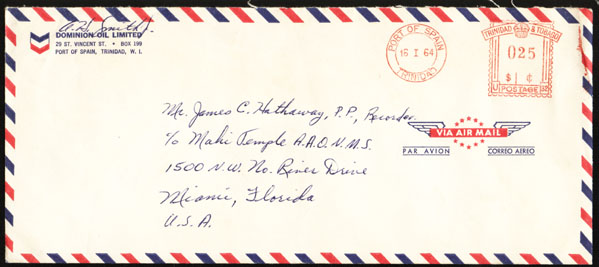 A. H. Smith Jr.
DOMINION OIL LIMITED
29 ST. VINCENT ST. • BOX 199
PORT OF SPAIN, TRINIDAD, W. I.
PORT OF SPAIN
16 I 64
TRINIDAD
TRINIDAD & TOBAGO
025
$ ¢
POSTAGE
Mr. James C. Hathaway, P.P., Recorder
c/o Mahi Temple A.A.O.N.M.S.
1500 N.W. No. River Drive
Miami, Florida
U.S.A.
VIA AIR MAIL
PAR AVION CORREO AEREO